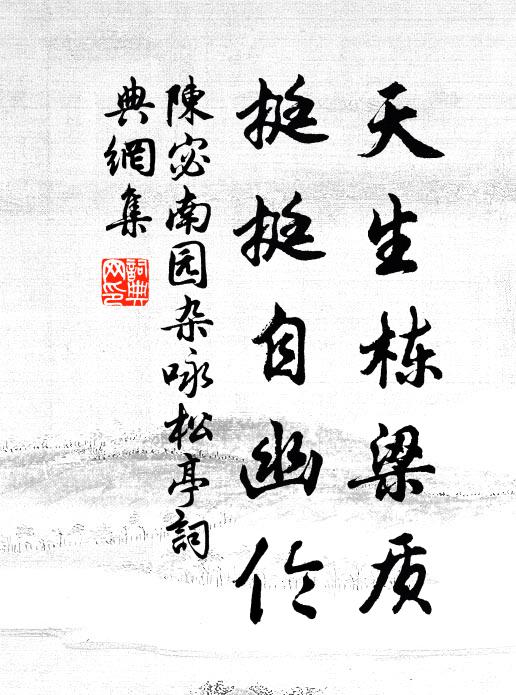 天生栋梁质
挺挺自幽伫
陳宓南园杂咏松亭詞
典網集
詞典
网印